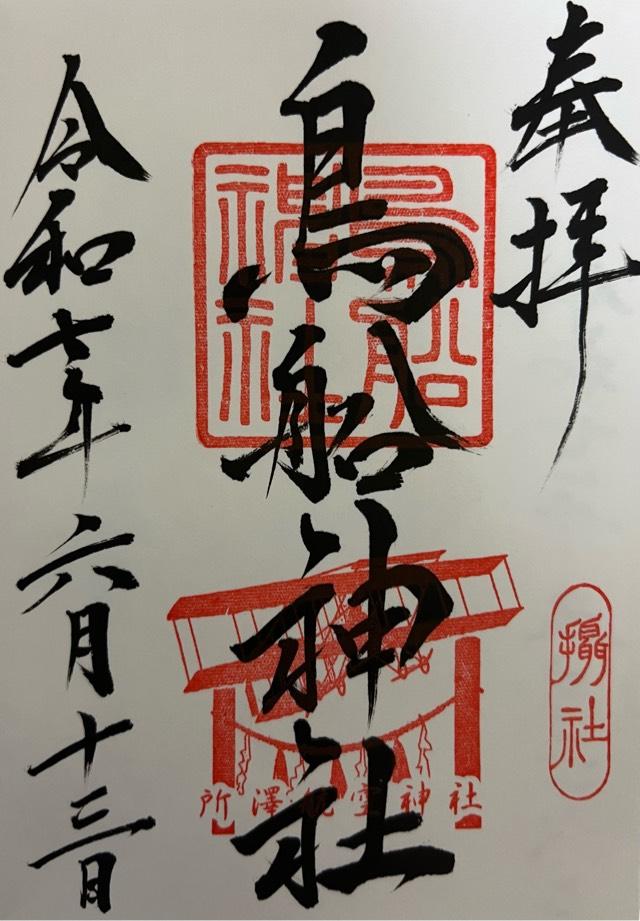 奉拝
摂社
鳥船神社
鳥船神社
所澤航空神社
令和七年六月十三日